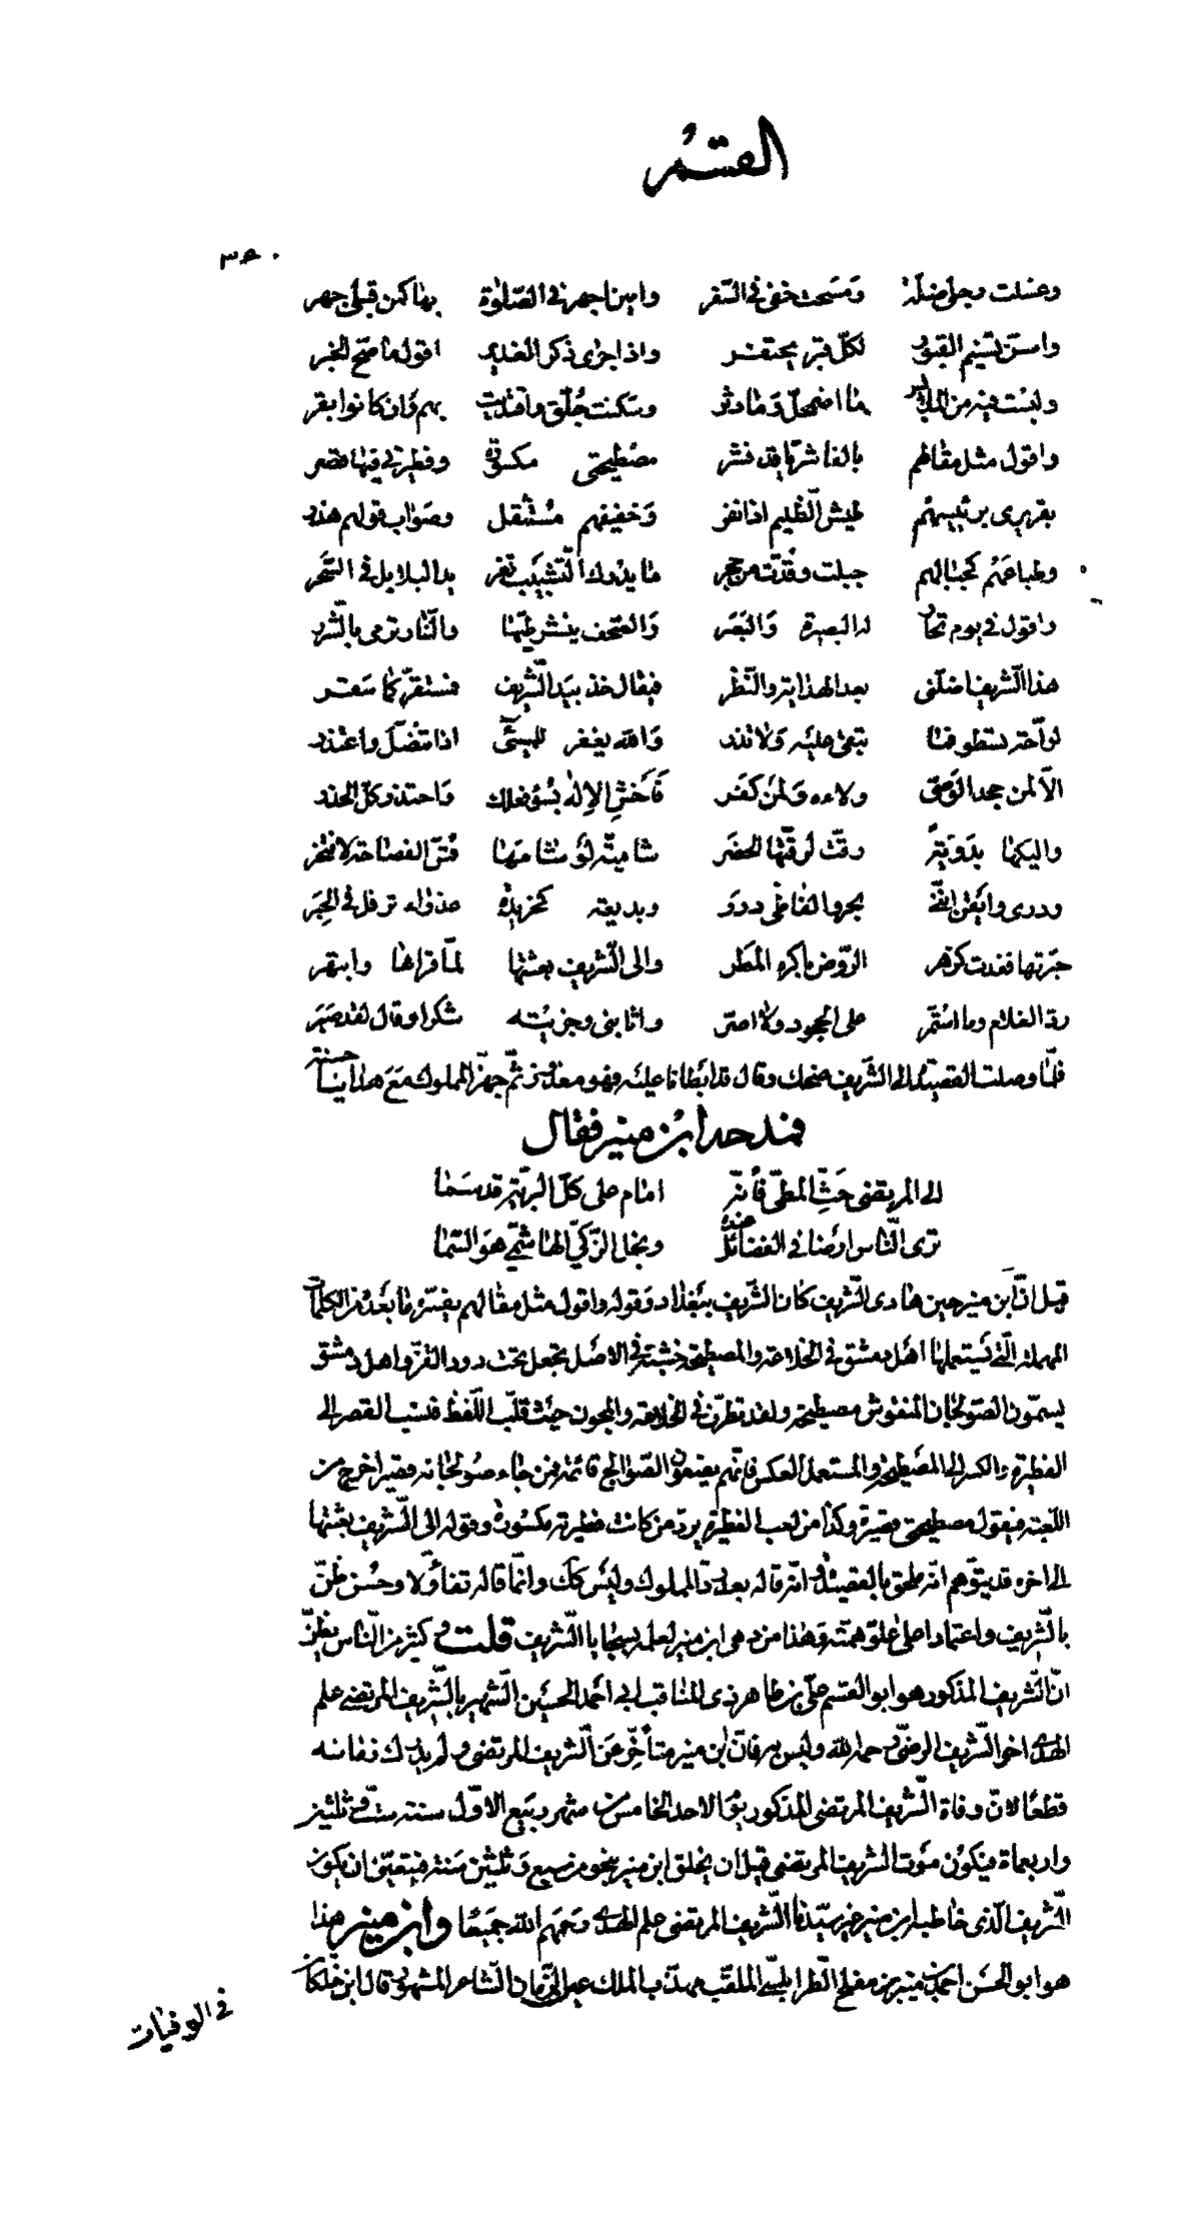 القسم
٣٥٠
وغسلت رجلي ضلة ومسحت خفي في السفر وامين اجهر في الصلوة بها كمن قبلي جهر
واسن تسنيم القبور لكل قبر يحتفر واذا جرى ذكر الغدير اقول ما صح الخبر
ولبست فيه من الملابس ما اضمحل وما دثر وسكنت جلق واقتديت بهم وان كانوا بقر
واقول مثل مقالهم بالفاشريا قد فشر مصطيحتي مكسورة وفطيرتي فيها قصر
بقر يرى برئيسهم طيش الظليم اذا نفر وخفيفهم مستثقل وصواب قولهم هذر
وطباعهم كجبالهم جبلت وقدت من حجر ما يدرك التشبيب تغريد البلابل في السحر
واقول في يوم تحار له البصيرة والبصر والصحف ينشر طيها والنار ترمى بالشرر
هذا الشريف اضلني بعد الهداية والنظر فيقال خذ بيد الشريف فمستقركما سقر
لواحة تسطو فما تبقي عليه ولا تذر والله يغفر للمسئ اذا تنصل واعتذر
الا لمن جحد الوصي ولاءه ولمن كفر فاخش الاله بسوء فعلك واحتذر كل الحذر
واليكها بدوية رقت لرقتها الحضر شامية لو شامها قس الفصاحة لافتخر
ودرى وايقن انني بحر والفاظي درر وبديعة كخريدة عذراء ترفل في الحبر
حبرتها فغدت كزهر الروض باكره المطر والى الشريف بعثتها لما قراها وابتهر
رد الغلام وما استمر على الجحود ولا اصر واثابني وجزيته شكرا وقال لقد صبر
فلما وصلت القصيدة الى الشريف ضحك وقال قد ابطانا عليه فهو معذور ثم جهز المملوك مع هدايا حسنة
فمدحه ابن منير فقال
الى المرتضى حث المطي فانه امام على كل البرية قد سما
ترى الناس ارضا في الفضائل عنده ونجل الزكي الهاشمي هو السما
قيل ان ابن منير حين هادى الشريف كان الشريف ببغداد وقوله واقول مثل مقالهم يفسره ما بعده من الكلمات
المهملة التي يستعملها اهل دمشق في الخلاعة والمصطيحة خشبة في الاصل تجعل تحت دود القز واهل دمشق
يسمون الصولجان المنقوش مصطيحة ولقد تطرف في الخلاعة والمجون حيث قلب اللفظ فنسب القصر الى
الفطيرة والكسر الى المصطيحة والمستعمل العكس فانهم يضعون الصوالج قائمة فمن جاء صولجانه قصيرا خرج من
اللعبة فيقول مصطيحتي قصيرة وكذا من لعب الفطيرة يرد من كانت فطيرته مكسورة وقوله الى الشريف بعثتها
الى اخره قد يتوهم انه ملحق بالقصيدة وانه قاله بعد رد المملوك وليس كك وانما قاله تفاؤلا وحسن ظن
بالشريف واعتمادا على علو همته وهذا من دهى ابن منير لعلمه بسجايا الشريف قلت وكثير من الناس يظن
ان الشريف المذكور هو ابو القسم علي بن طاهر ذي المناقب ابي احمد الحسين الشهير بالشريف المرتضى علم
الهدى اخو الشريف الرضي رحمه الله وليس به فان ابن منير متأخر عن الشريف المرتضى ولم يدرك زمانه
قطعا لان وفاة الشريف المرتضى المذكور يوم الاحد الخامس من شهر ربيع الاول سنة ست وثلثين
واربعماة فيكون موت الشريف المرتضى قبل ان يخلق ابن منير بنحو من سبع وثلثين سنة فيتعين ان يكون
الشريف الذي خاطبه ابن منير غير سيدنا الشريف المرتضى علم الهدى رحمهم الله جميعا وابن منير هذا
هو ابو الحسن احمد بن منير بن مفلح الطرابلسي الملقب مهذب الملك عين الزمان الشاعر المشهور قال ابن خلكان
في الوفيات